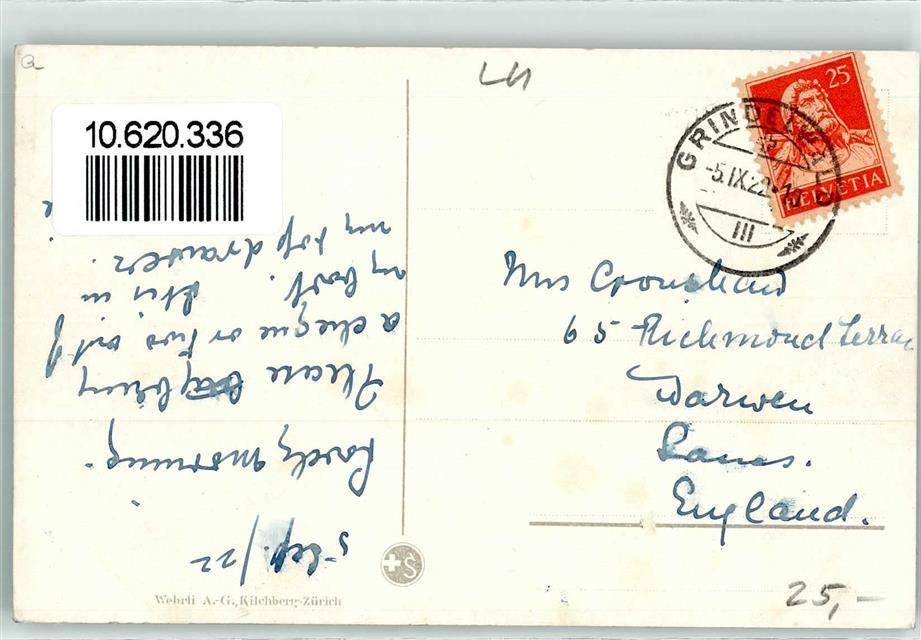 LH
10.620.336
GRINDELWALD
-5.IX.22.-
III
25
HELVETIA
5 Sep./22
morning.
Please bring
a cheque or two out of
my book. It is in
my top drawer.
Mrs Cronshaw
65 Richmond Terrac
Darwen
Lancs.
England.
Wehrli A.-G., Kilchberg-Zürich
25,-